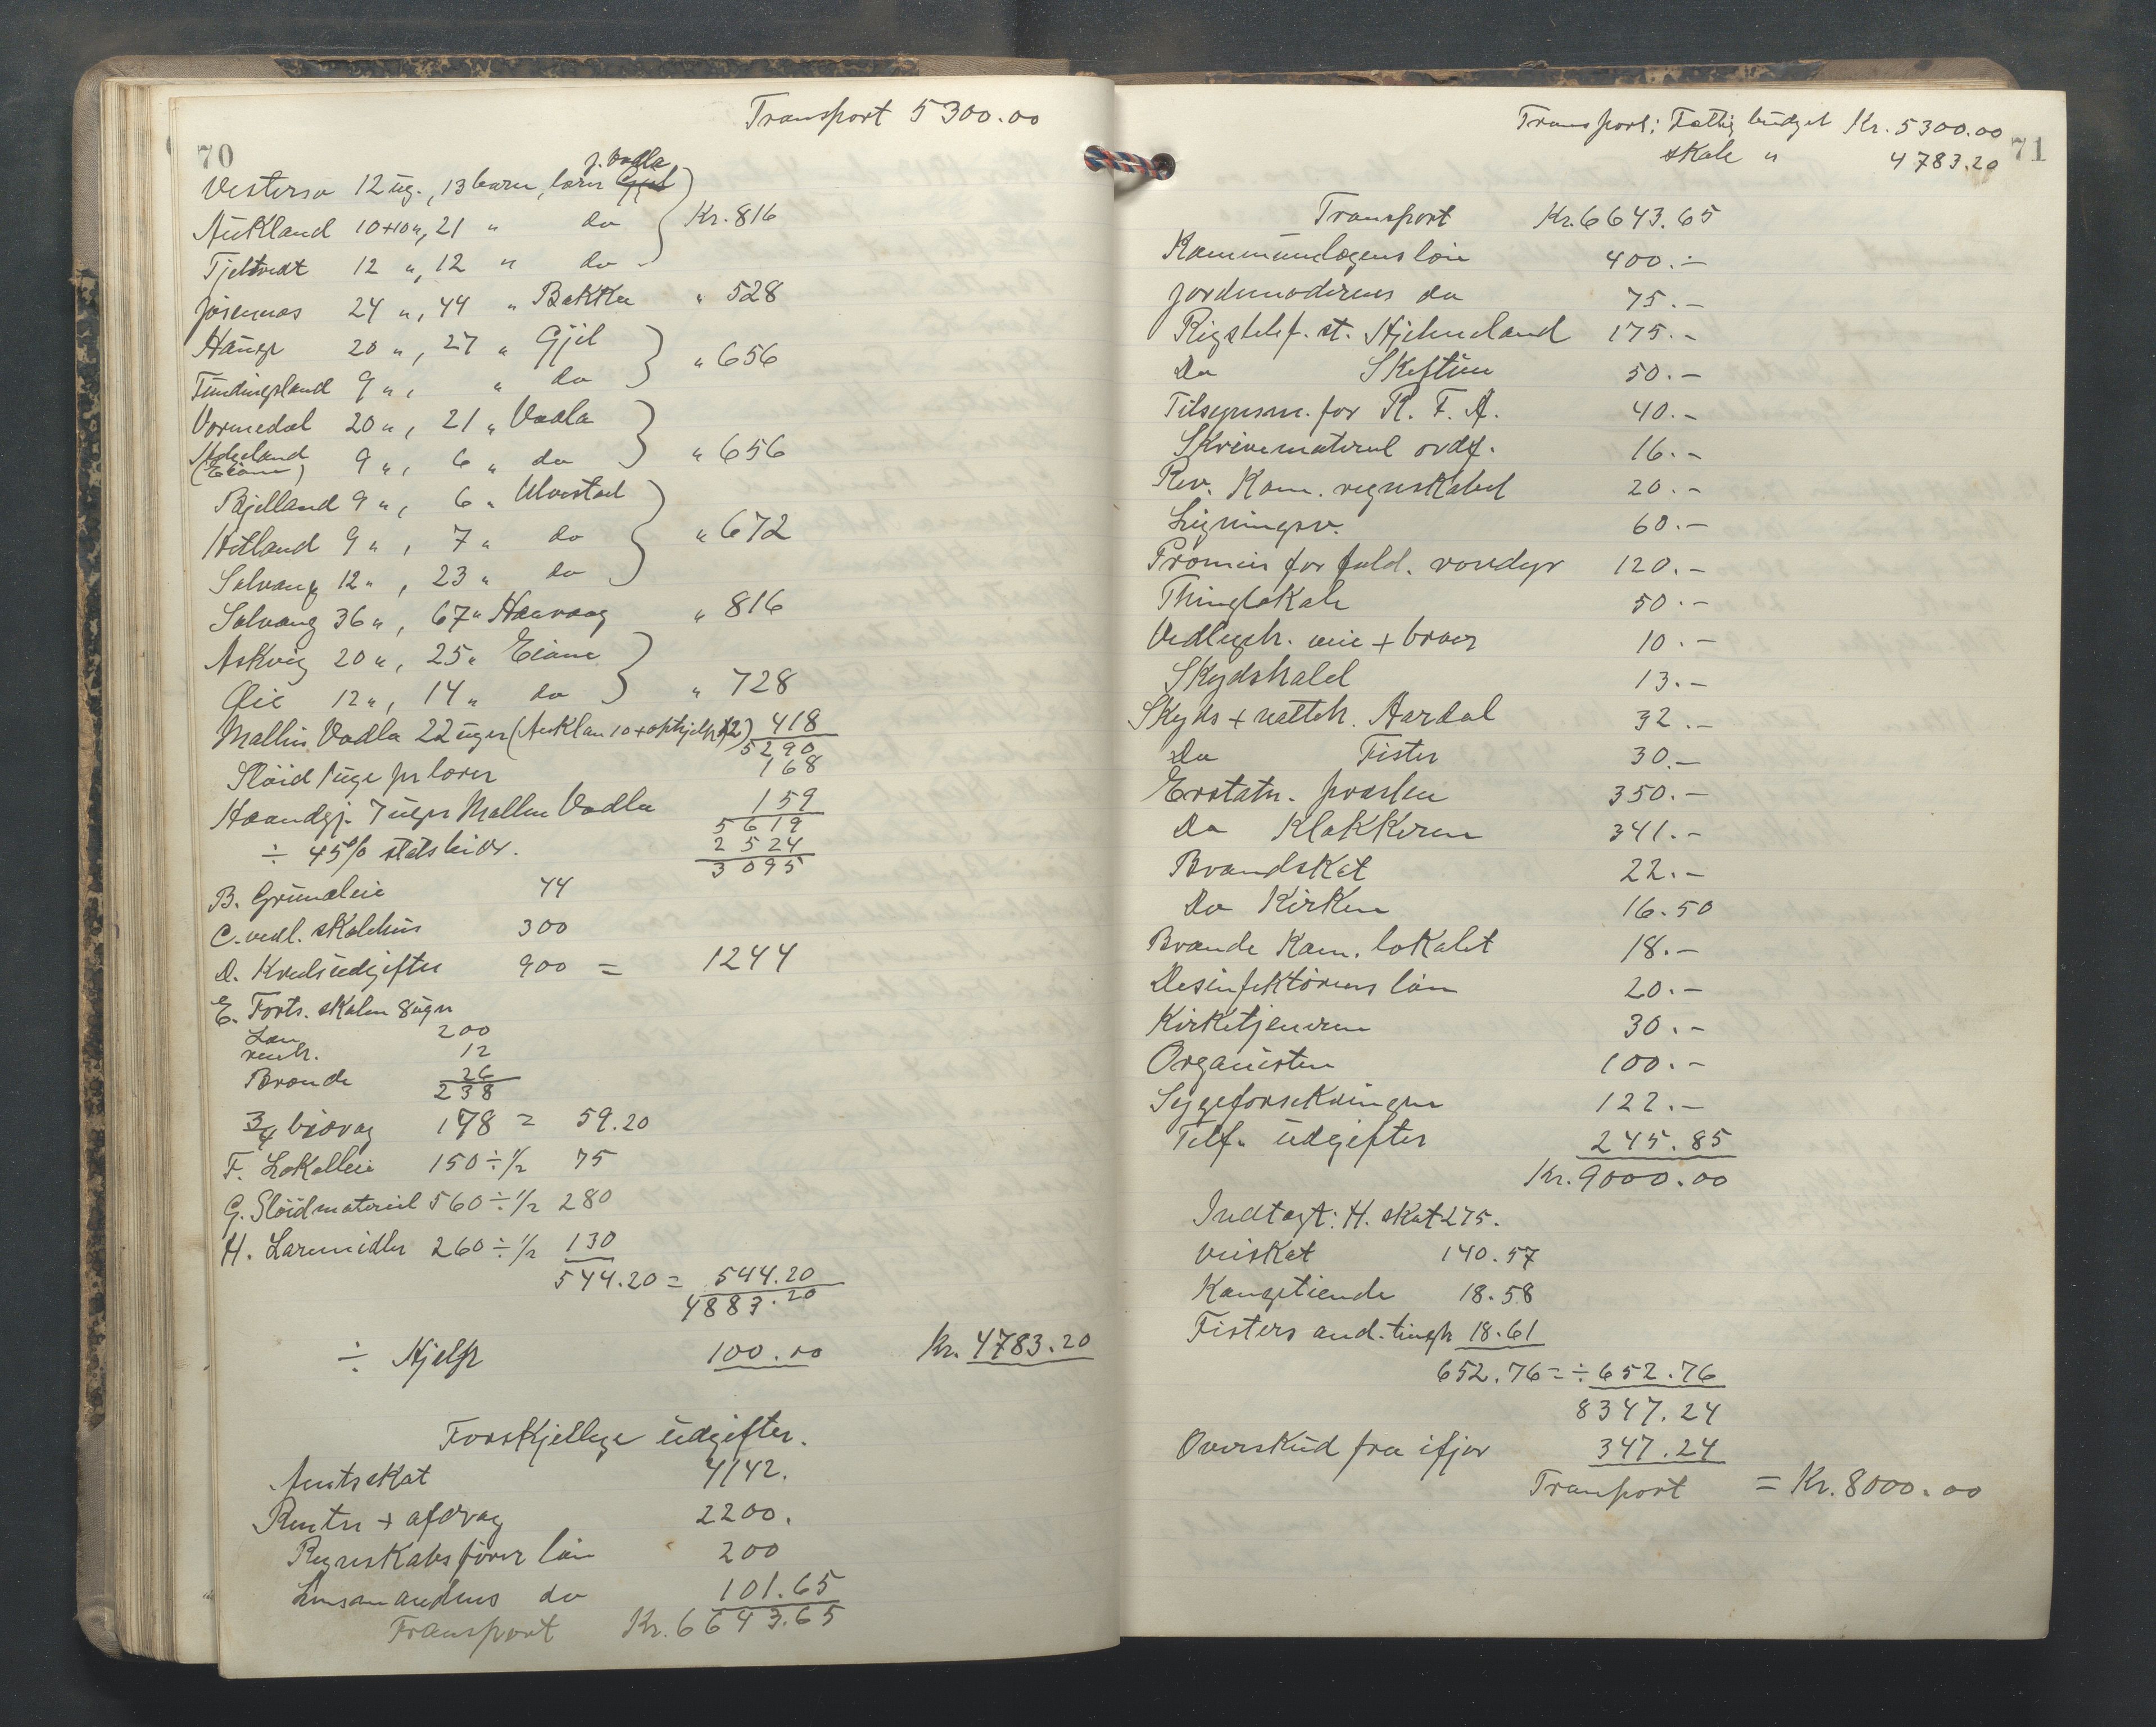 70
Transport 5300.00
J. Vadla
Vestersø 12 ug., 13 barn, lærer
Aukland 10+10 ", 21 " do
Kr. 816
Tjeltveit 12 ", 12 " do
Jøsennøs 24 ", 44 " Bakka " 528
Hauge 20 ", 27 " Gjil
" 656
Tundingsland 9 ", " do
Vormedal 20 ", 21 " Vadla
" 656
(Eiane) 9 ", 6 " do
Bjelland 9 ", 6 " Ulvestad
Hetland 9 ", 7 " do
" 672
Solvang 12 ", 23 " do
Solvang 36 ", 67 " Haavaag " 816
Askvig 20 ", 25 " Eiane
Øie 12 ", 14 " do " 728
Mallin Vadla 22 uger (Auklan 10+ophjelp 12) 418
5290
Slöid 1 uge pr lærer 168
Haandgj. 7 uger Mallin Vadla 159
5619
÷ 45% statsbidr. 2524
3095
B. Grundleie 44
C. vedl. skolehus 300
D. Kredsudgifter 900 = 1244
E. Forts. skolen 8 uger
Løn 200
renh. 12
Brænde 26
238
3/4 bidrag 178 = 59.20
F. Lokalleie 150 ÷ 1/2 75
G. Slöidmateriel 560 ÷ 1/2 280
H. Læremidler 260 ÷ 1/2 130
544.20 = 544.20
4883.20
÷ Hjelp 100.00 Kr. 4783.20
Forskjellige udgifter.
Amtsskat 4142.
Renter + afdrag 2200.
Regnskabsfører løn 200
Lensmandens do 101.65
Transport Kr. 6643.65
71
Transport: Fattig budget Kr. 5300.00
skole " 4783.20
Transport Kr. 6643.65
Kommunelægens løn 400.-
Jordmoderens do 75.-
Rigstelef. st. Hjelmeland 175.-
Do Skeftun 50.-
Tilsynsm. for R. F. A. 40.-
Skrivemateriel ordf. 16.-
Rev. Kom. regnskabet 20.-
Ligningsv. 60.-
Præmier for fæld. rovdyr 120.-
Thinglokale 50.-
Vedligeh. veie + broer 10.-
Skydshald 13.-
Skyds + natteh. Aardal 32.-
Do Fister 30.-
Erstatn. præsten 350.-
Do Klokkeren 341.-
Brandskat 22.-
Do Kirken 16.50
Brænde Kom. lokalet 18.-
Desinfektørens løn 20.-
Kirketjeneren 30.-
Organisten 100.-
Sygeforsekringen 122.-
Telf. udgifter 245.85
Kr. 9000.00
Indtægt: H. skat 275.
Veiskat 140.57
Kongetiende 18.58
Fisters and. tingh 18.61
652.76 = ÷ 652.76
8347.24
Overskud fra ifjor 347.24
Transport = Kr. 8000.00